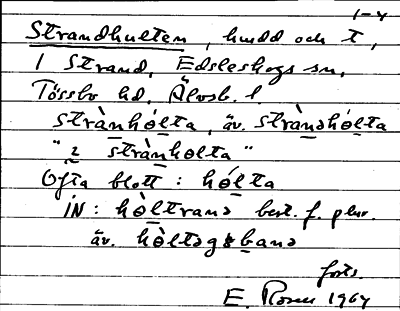 1-4
Strandhulten, hudd och t,
1 Strand, Edsleskogs sn,
Tössbo hd, Älvsb. l.
strànhólta, äv. strànəhólta
"2 strànholta"
Ofta blott: hólta
iN: hòltrana best. f. plur.
äv. hòltəgəbana
forts.
E. Rosen 1964